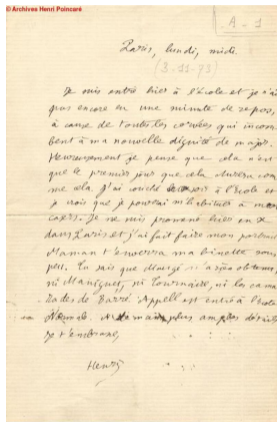 © Archives Henri Poincaré
A-1
Paris, lundi, midi.
(3-11-73)
Je suis entré hier à l'École et je n'ai
pas encore eu une minute de repos,
à cause de toutes les corvées qui incom
bent à ma nouvelle dignité de major.
Heureusement je pense que cela n'est
que le premier jour que cela durera com
me cela. J'ai couché à l'École et
je crois que je pourrai m'habituer à mon
casers. Je me suis promené hier en
dans Paris et j'ai fait faire mon portrait
Maman t'enverra ma binette sous
peu. Tu sais que n'a rien obtenu,
ni ni Tournaire, ni les cama
rades de Barré. Appell est entré à l'École
Normale. A demain plus amples détails
Je t'embrasse,
Henri